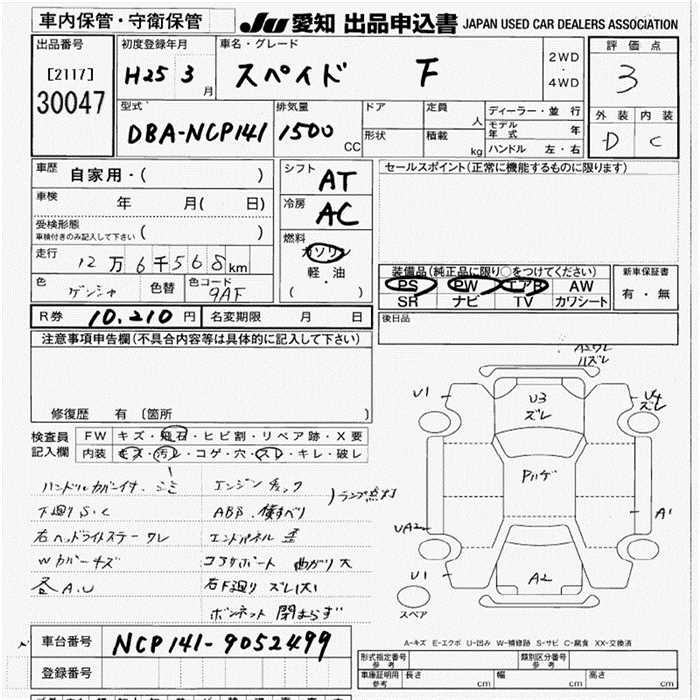 車内保管・守衛保管 JU 愛知 出品申込書 JAPAN USED CAR DEALERS ASSOCIATION
出品番号 初度登録年月 車名・グレード 2WD・4WD 評価点
[2117] 30047 H25 3月 スペイド F 3
型式 排気量 ドア 定員 人 ディーラー・並行 外装 内装
DBA-NCP141 1500 CC 形状 積載 kg モデル年式 年 D C
ハンドル 左・右
車歴 自家用・( ) シフト AT セールスポイント(正常に機能するものに限ります)
車検 年 月( 日) 冷房 AC
受検形態 車検付きのみ記入して下さい ( )
燃料 ガソリン 軽・油 ( )
走行 12万6千568km 装備品(純正品に限り○をつけてください) 新車保証書
色 ゲンシャ 色替 色コード 9AF PS PW エアB AW 有・無
SR ナビ TV カワシート
R券 10,210円 名変期限 月 日 後日品
注意事項申告欄(不具合内容等は具体的に記入して下さい)
修復歴 有 〔箇所 〕
ハズレ
U1 U3 ズレ U4 ズレ
検査員記入欄 FW キズ・飛石・ヒビ割・リペア跡・X要
内装 キズ・汚レ・コゲ・穴・スレ・キレ・破レ
ハンドルカバー付 シミ エンジンチェック
下廻りS・C ABS・横すべり )ランプ点灯
右ヘッドライトステー ワレ
Wカバーキズ コアサポート 曲がり大
A.U 右F廻り ズレ(大)
ボンネット 閉まらず
UA2 A1 U1 A2
スペア
A-キズ E-エクボ U-凹み W-補修跡 S-サビ C-腐食 XX-交換済
車台番号 NCP141-9052499
登録番号
形式指定番号 参考 類別区分番号 参考
車庫証明用 参考 長さ cm 幅 cm 高さ cm